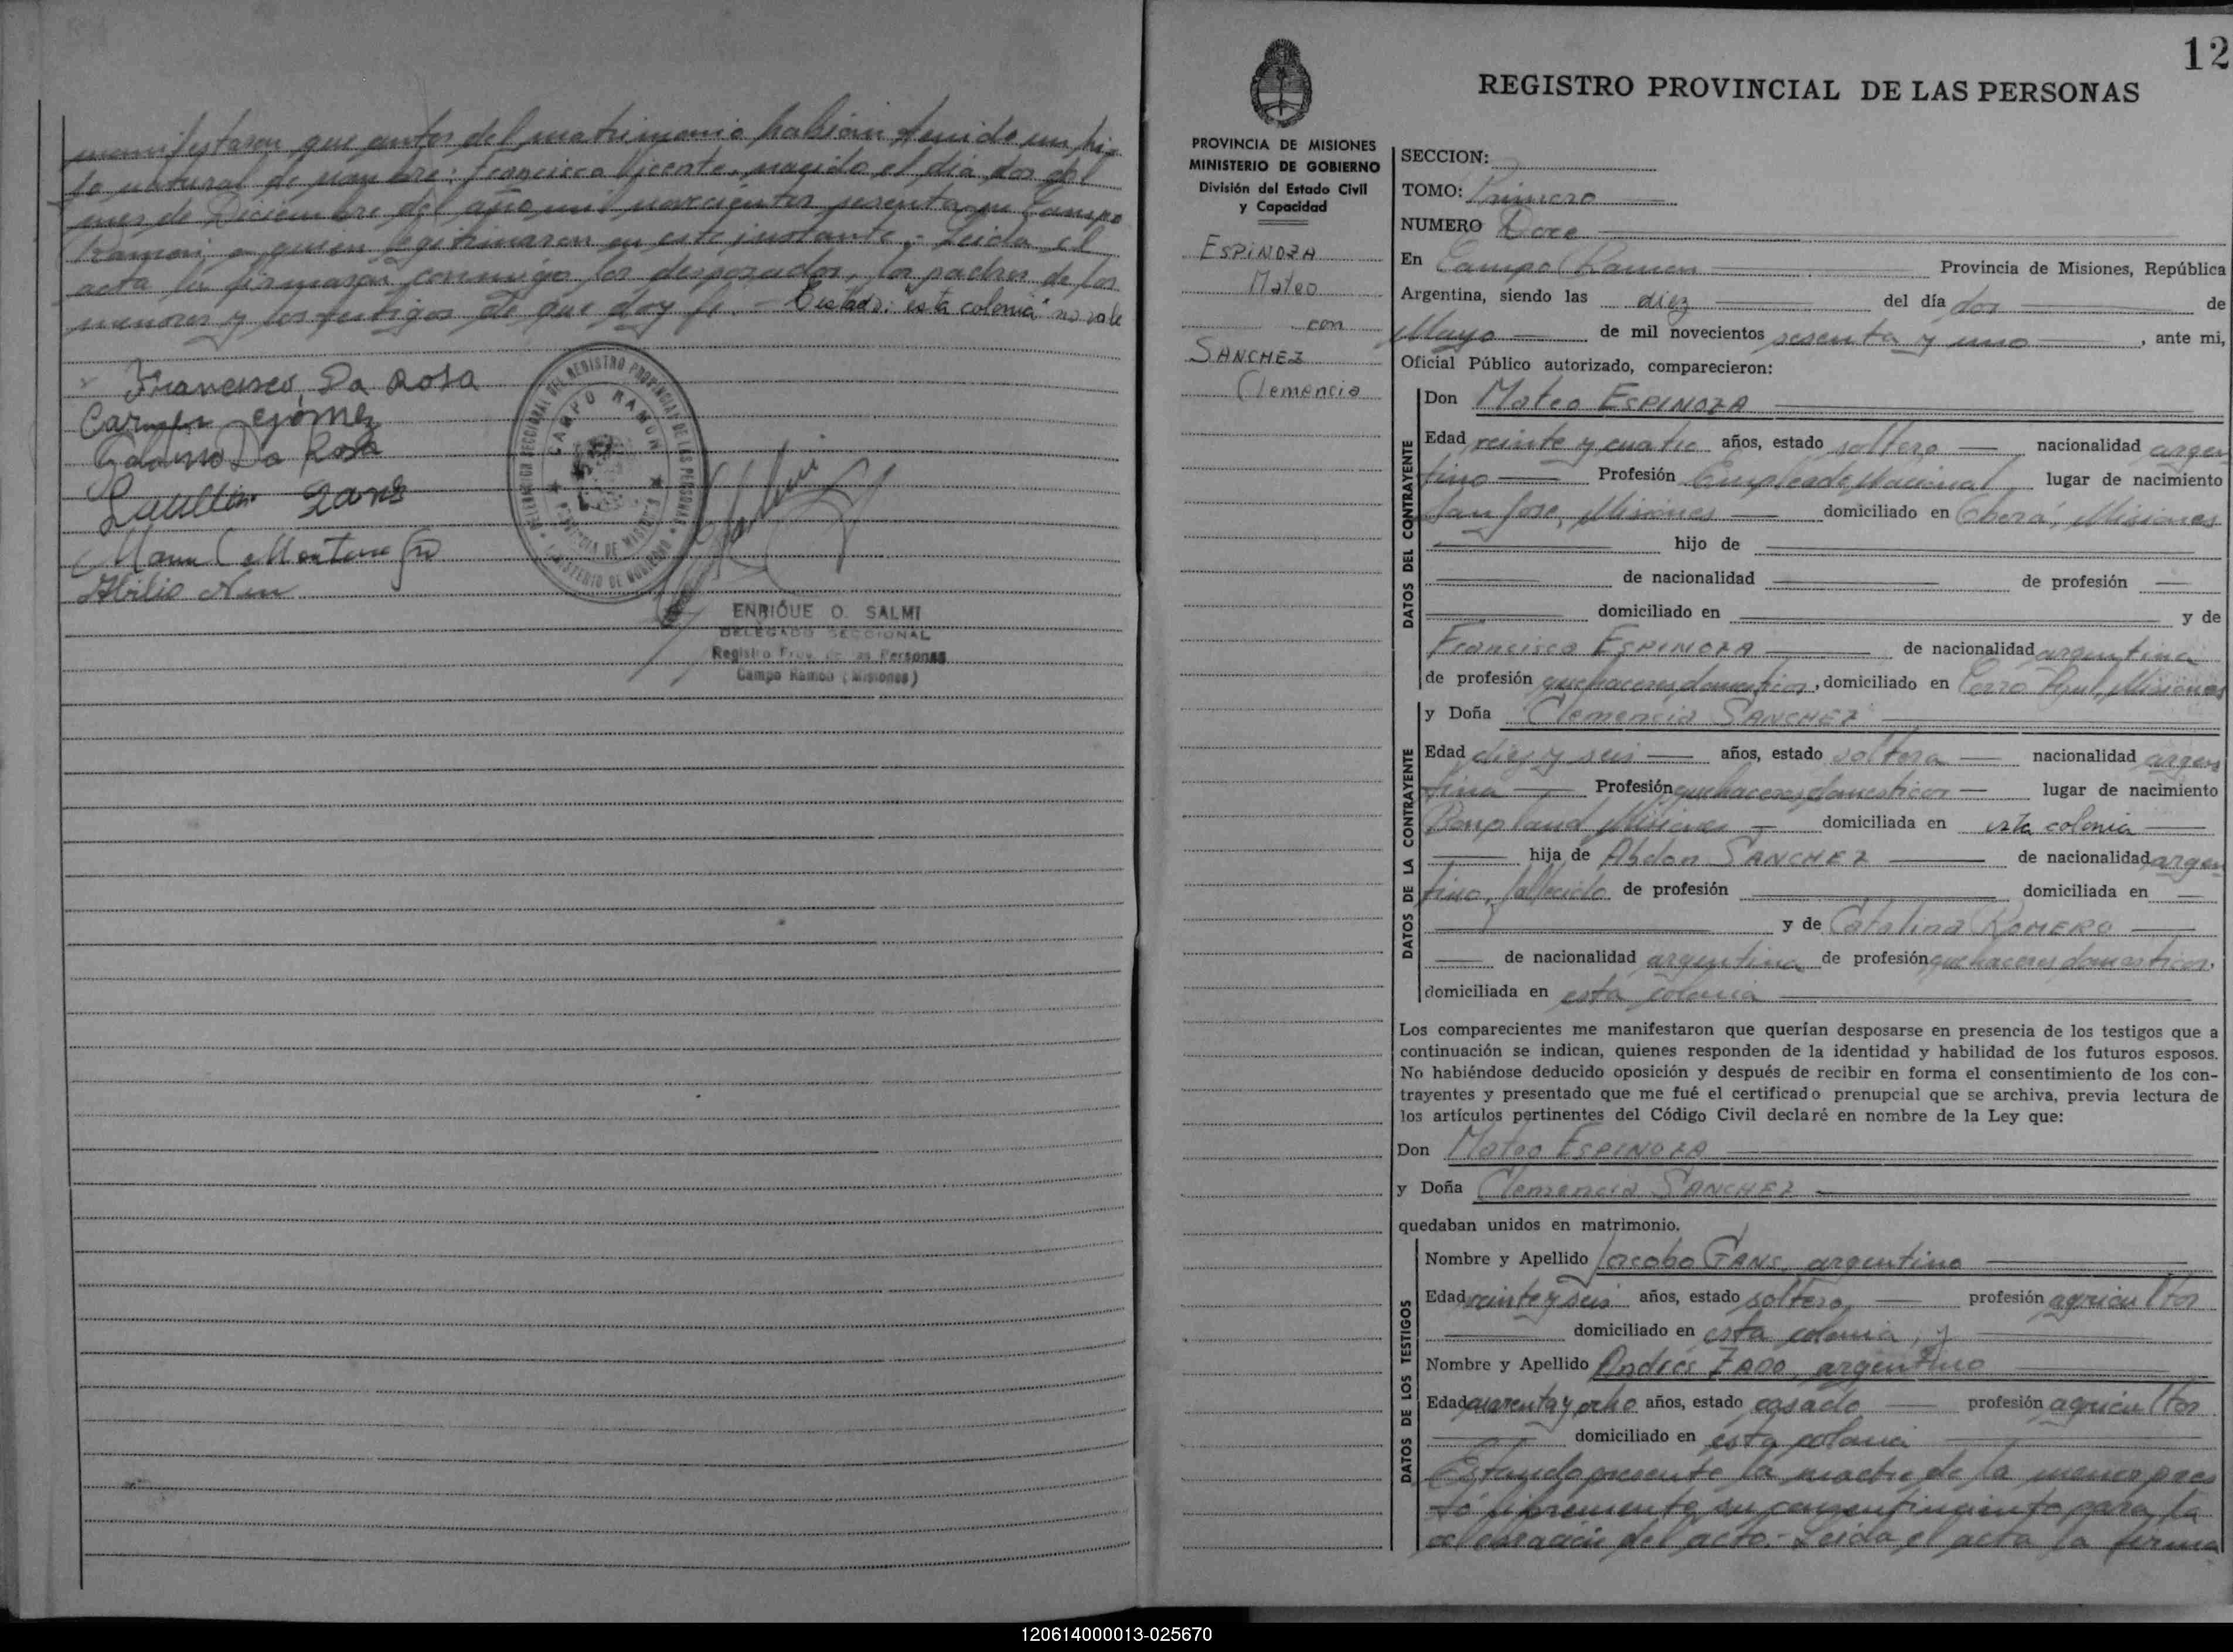 manifestaron que antes del matrimonio habían tenido un hi-
jo natural de nombre: Francisco Vicente, nacido el día dos del
mes de Diciembre del año mil novecientos sesenta en Campo
Ramón, a quien legitimaron en este instante.- Leida el
acta la firmaron conmigo los desposados, los padres de los
menores y los testigos de que doy fe.- Testado: "esta colonia" no vale
Francisco Da Rosa
Carmen Gómez
Da Rosa
Abilio
DELEGACION SECCIONAL DEL REGISTRO PROVINCIAL DE LAS PERSONAS
CAMPO RAMON
PROVINCIA DE MISIONES
MINISTERIO DE GOBIERNO
ENRIQUE O. SALMI
DELEGADO SECCIONAL
Registro Prov. de las Personas
Campo Ramón (Misiones)
12
REGISTRO PROVINCIAL DE LAS PERSONAS
PROVINCIA DE MISIONES
MINISTERIO DE GOBIERNO
División del Estado Civil
y Capacidad
ESPINOZA
Mateo
con
SANCHEZ
Clemencia
SECCION:
TOMO: Primero
NUMERO Doce
En Campo Ramón Provincia de Misiones, República
Argentina, siendo las diez del día dos de
Mayo de mil novecientos sesenta y uno, ante mi,
Oficial Público autorizado, comparecieron:
DATOS DEL CONTRAYENTE
Don Mateo ESPINOZA
Edad veinte y cuatro años, estado soltero nacionalidad argen
tino Profesión Empleado Nacional lugar de nacimiento
San José, Misiones domiciliado en Oberá, Misiones
hijo de
de nacionalidad de profesión
domiciliado en y de
Francisca ESPINOZA de nacionalidad argentina
de profesión quehaceres domesticos, domiciliado en Cerro Azul, Misiones
DATOS DE LA CONTRAYENTE
y Doña Clemencia SANCHEZ
Edad diez y seis años, estado soltera nacionalidad argen
tina Profesión quehaceres domesticos lugar de nacimiento
Bonpland Misiones domiciliada en esta colonia
hija de Abdon SANCHEZ de nacionalidad argen
tino, fallecido de profesión domiciliada en
y de Catalina ROMERO
de nacionalidad argentina de profesión quehaceres domesticos,
domiciliada en esta colonia
Los comparecientes me manifestaron que querían desposarse en presencia de los testigos que a
continuación se indican, quienes responden de la identidad y habilidad de los futuros esposos.
No habiéndose deducido oposición y después de recibir en forma el consentimiento de los con-
trayentes y presentado que me fué el certificado prenupcial que se archiva, previa lectura de
los artículos pertinentes del Código Civil declaré en nombre de la Ley que:
Don Mateo ESPINOZA
y Doña Clemencia SANCHEZ
quedaban unidos en matrimonio.
DATOS DE LOS TESTIGOS
Nombre y Apellido Jacobo GANS, argentino
Edad veinte y seis años, estado soltero profesión agricultor
domiciliado en esta colonia, y
Nombre y Apellido Andrés argentino
Edad cuarenta y ocho años, estado casado profesión agricultor
domiciliado en esta colonia
Estando presente la madre de la menor pres
tó libremente su consentimiento para la
celebración del acto.- Leida el acta la firma
120614000013-025670